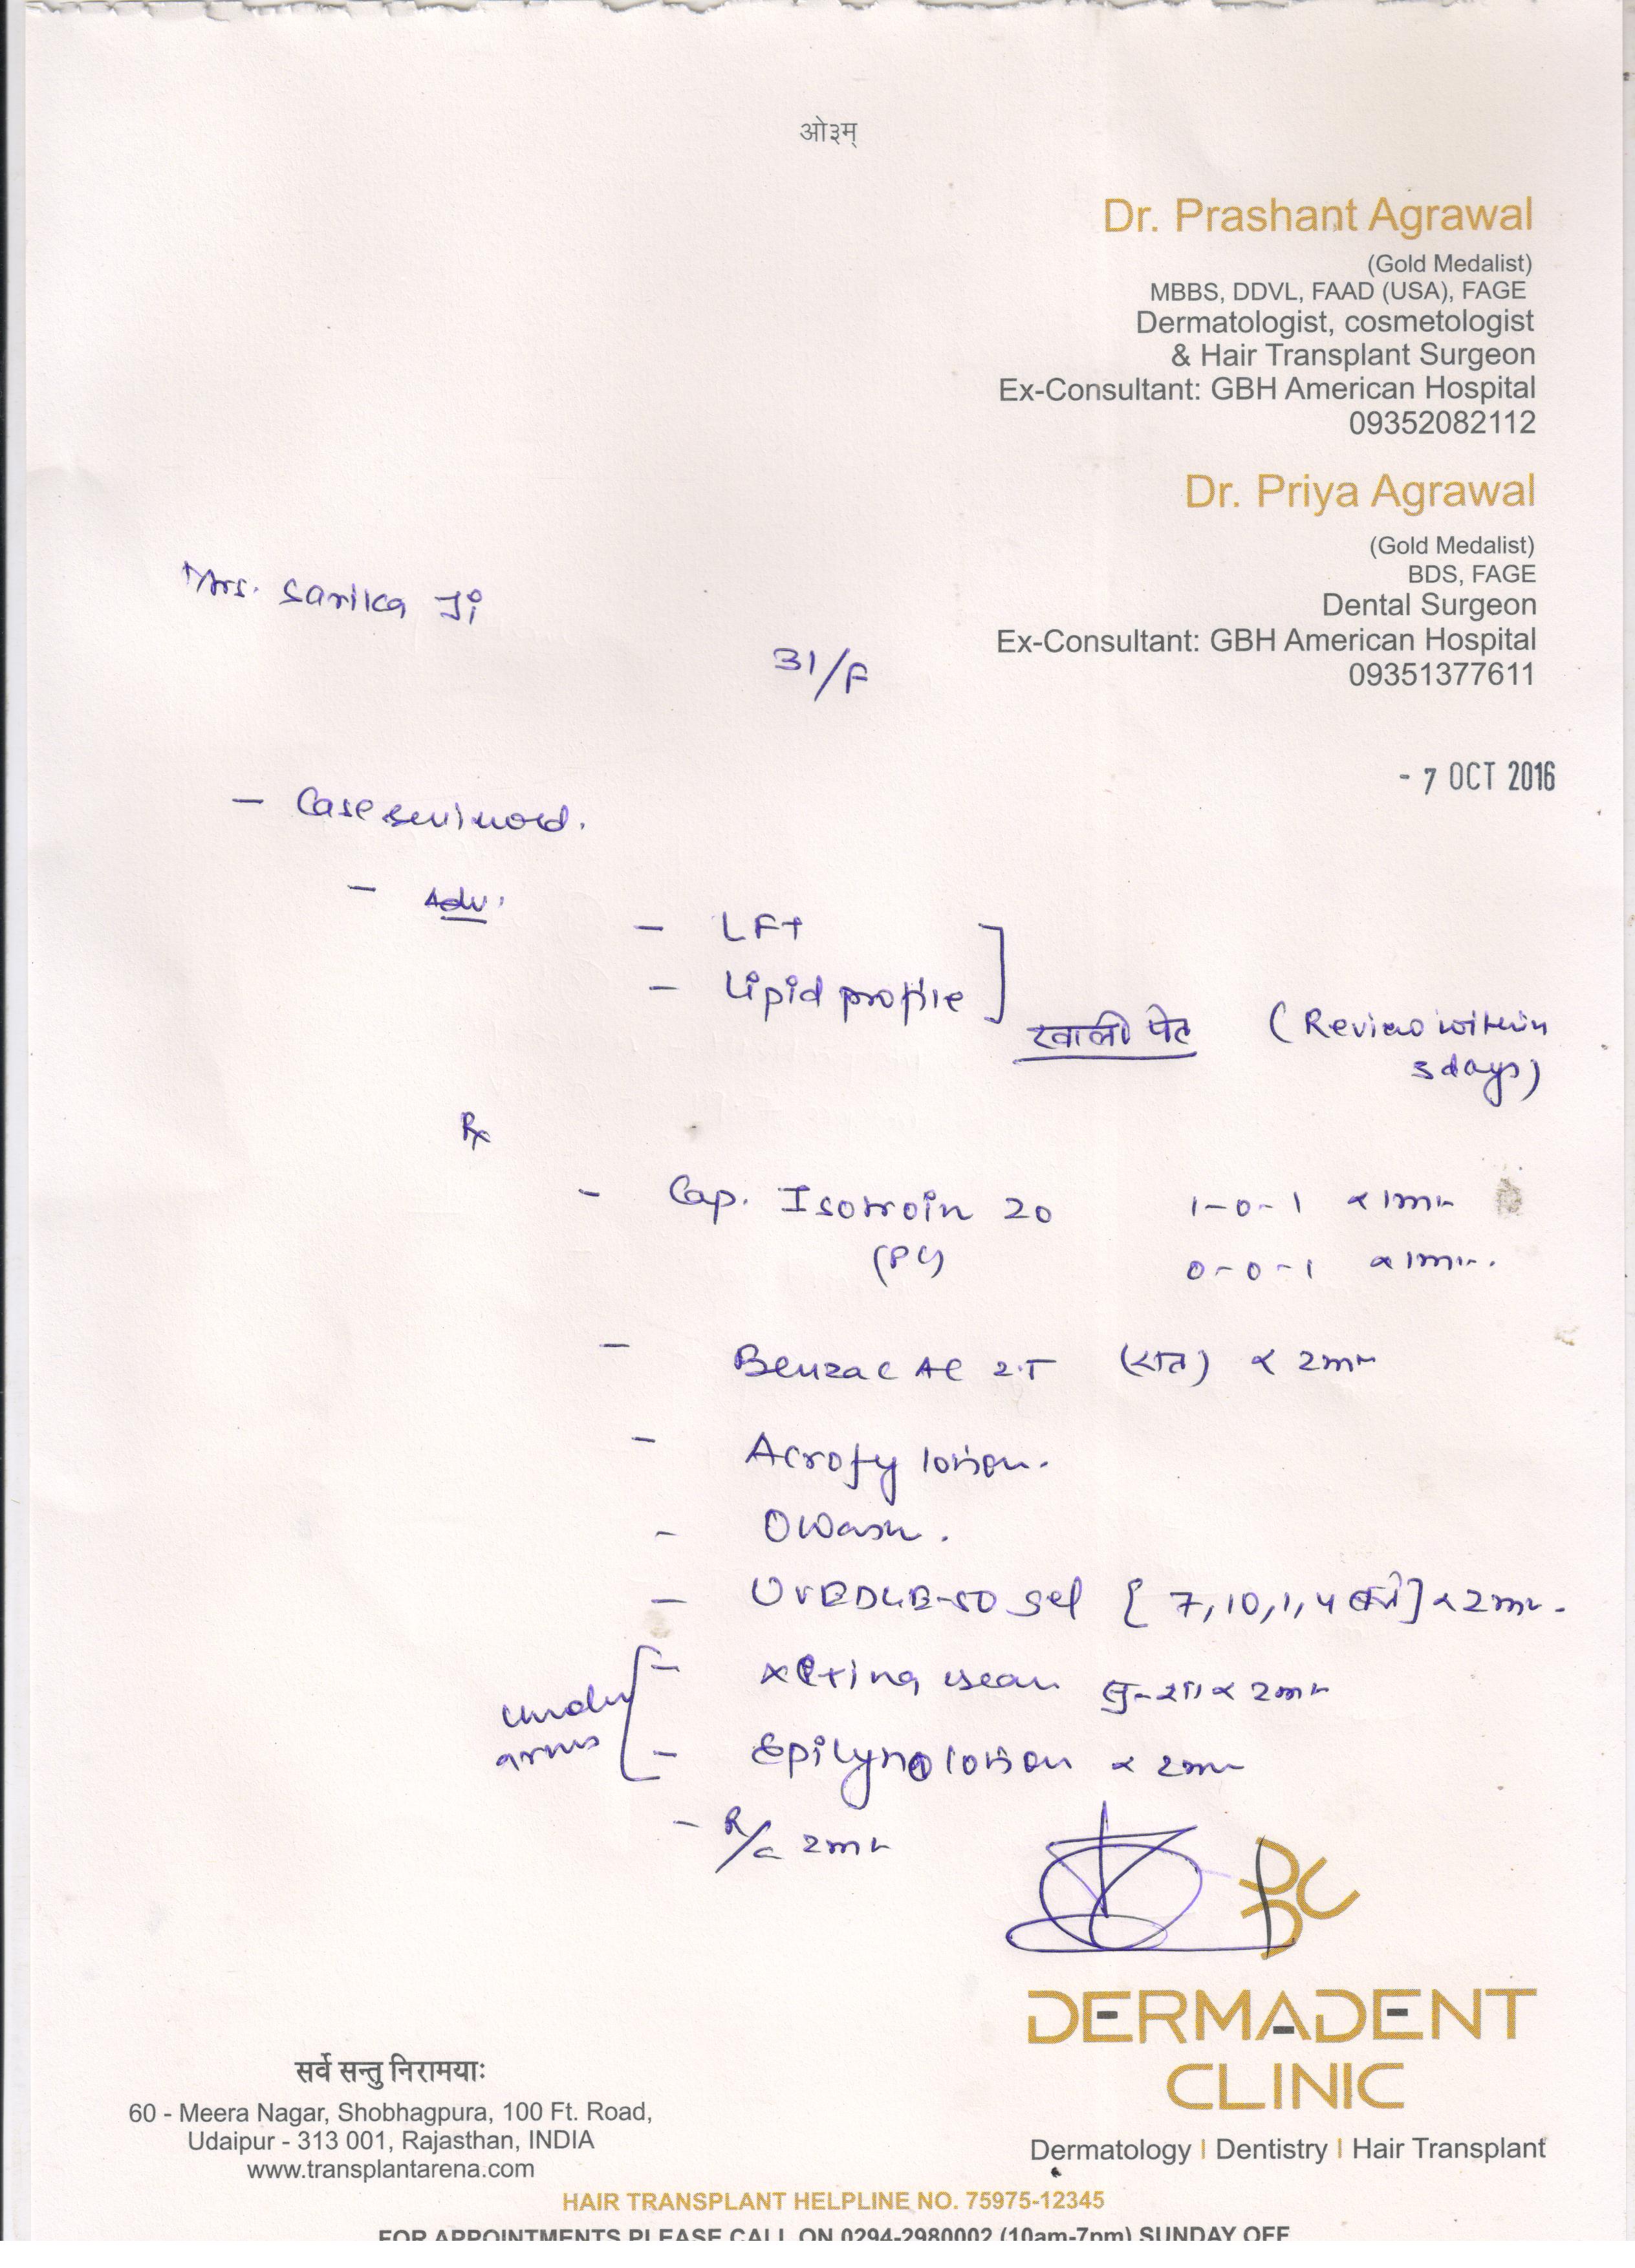 ओ३म्
Dr. Prashant Agrawal
(Gold Medalist)
MBBS, DDVL, FAAD (USA), FAGE
Dermatologist, cosmetologist
& Hair Transplant Surgeon
Ex-Consultant: GBH American Hospital
09352082112
Dr. Priya Agrawal
(Gold Medalist)
BDS, FAGE
Dental Surgeon
Ex-Consultant: GBH American Hospital
09351377611
Mrs. Sarika Ji
31/F
- 7 OCT 2016
- Case reviewed.
- Adv.
- LFT
- Lipid profile
खाली पेट (Review within
3 days)
Rx
- Cap. Isotroin 20 1-0-1 x 1m
(PC) 0-0-1 x 1m
- Benzac AC 2.5 (रात) x 2m
- Acrofy lotion.
- O Wash.
- gel [7, 10, 1, 4 बजे] x 2m
under
arms
- x 2m
- lotion x 2m
- R/c 2m
DERMADENT
CLINIC
Dermatology | Dentistry | Hair Transplant
सर्वे सन्तु निरामयाः
60 - Meera Nagar, Shobhagpura, 100 Ft. Road,
Udaipur - 313 001, Rajasthan, INDIA
www.transplantarena.com
HAIR TRANSPLANT HELPLINE NO. 75975-12345
FOR APPOINTMENTS PLEASE CALL ON 0294-2980002 (10am-7pm) SUNDAY OFF